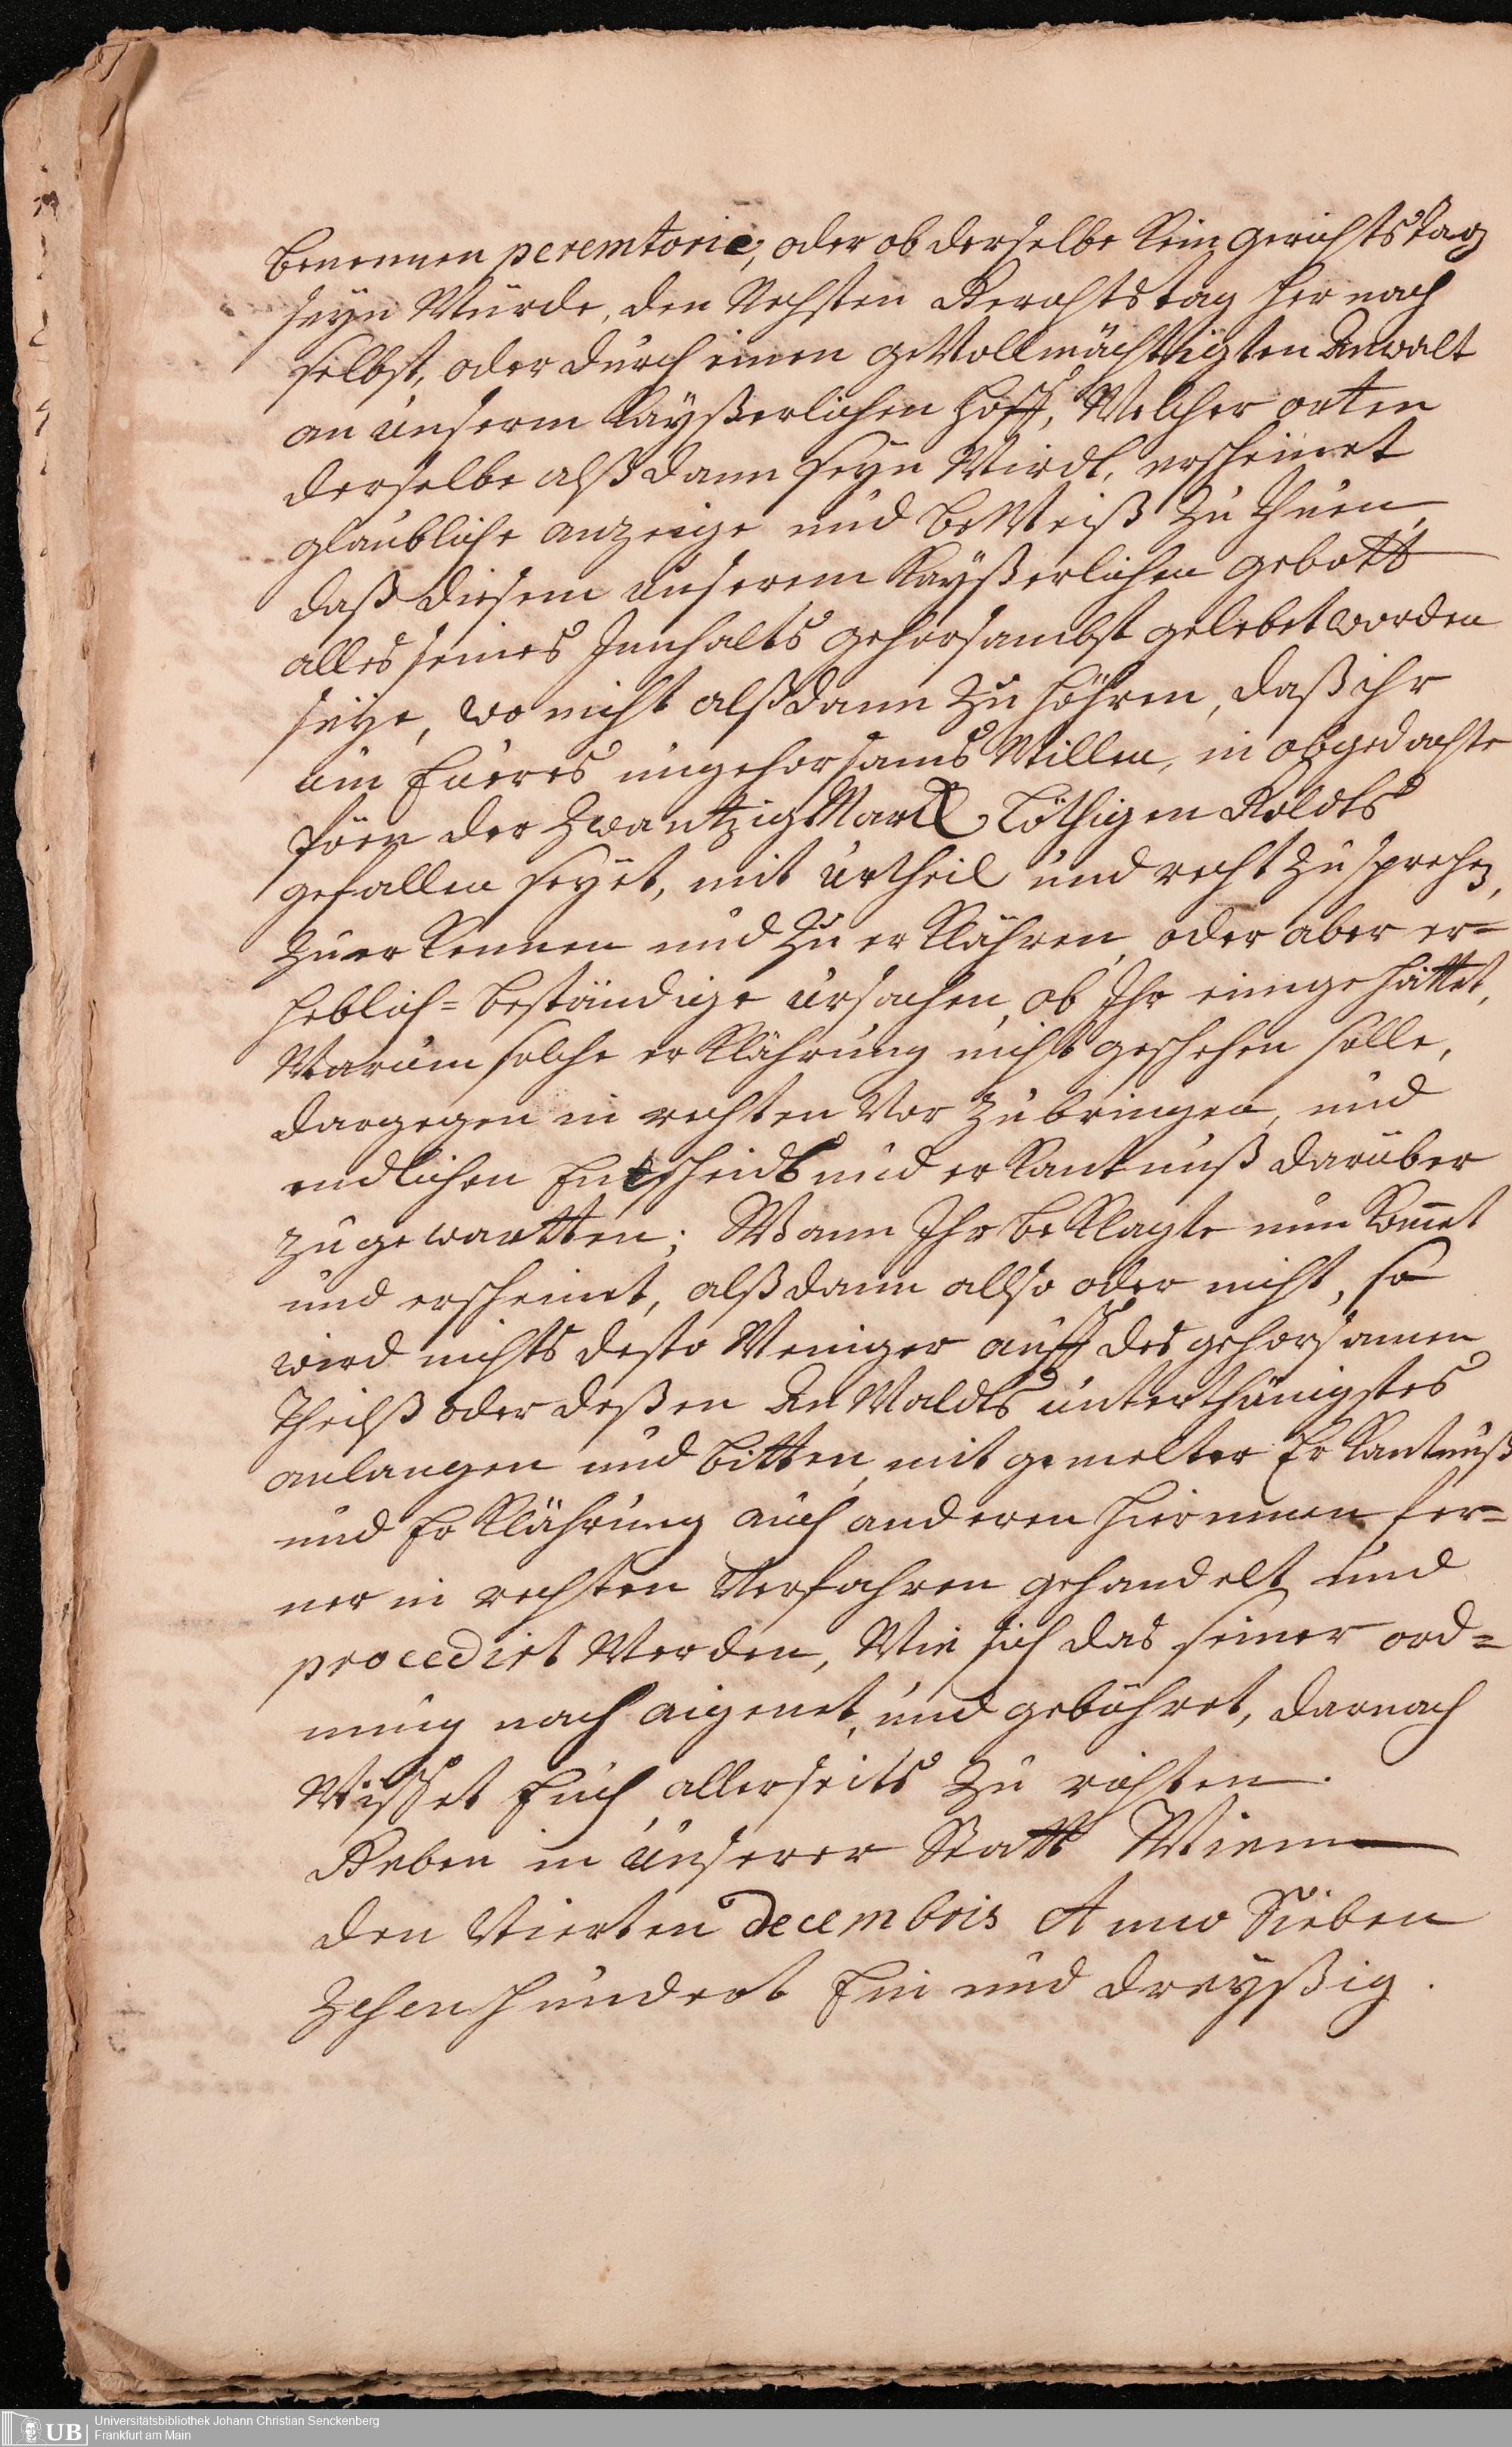 benennen peremtorie, oder ob derselbe kein gerichtstag
seyn Würde, den Nechsten Gerichtstag hernach
selbst, oder durch einen geVollmächtigten Anwalt
an unserm Kayßerlichen Hoff, Welcher orten
derselbe alßdann seyn Wirdt, erscheinet
glaubliche anzeige und beWeiß zu thuen,
daß diesem unserem Kayßerlichen gebott
alles seines Innhalts gehorsambst gelebet worden
seye, wo nicht alßdann zu höhren, daß ihr
um Eueres ungehorsams Willen, in obgedachte
pöen der zwantzig Marck Löthigen Goldts
gefallen seyet, mit urtheil und recht zu sprechen,
zu erkennen und zu erklähren, oder aber er-
heblich-beständige ursachen, ob Ihr einige hättet,
Warum solche erklährung nicht geschehen solle,
dargegen in rechten Vor zu bringen, und
endlichen Entscheidts und erkantnuß darüber
zu gewartten; Wann Ihr beklagte nun kommet
und erscheinet, alßdann allso oder nicht, so
wird nichts desto Weniger auff des gehorsamen
Theilß oder deßen AnWaldts unterthänigstes
anlangen und bitten, mit gemelter Erkantnuß
und Erklährung auch anderen hierinnen fer-
ner in rechten Verfahren gehandelt und
procedirt Werden, Wie sich das seiner ord-
nung nach aigenet, und gebühret, darnach
Wisset Euch allerseits zu richten.
Geben in unserer Statt Wienn
den Vierten Decembris Anno Sieben
zehen hundert Ein und dreyßig.
Universitätsbibliothek Johann Christian Senckenberg
Frankfurt am Main
UB